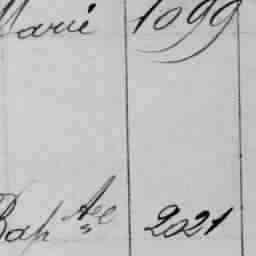 Marié 1099
Bap^te 2021